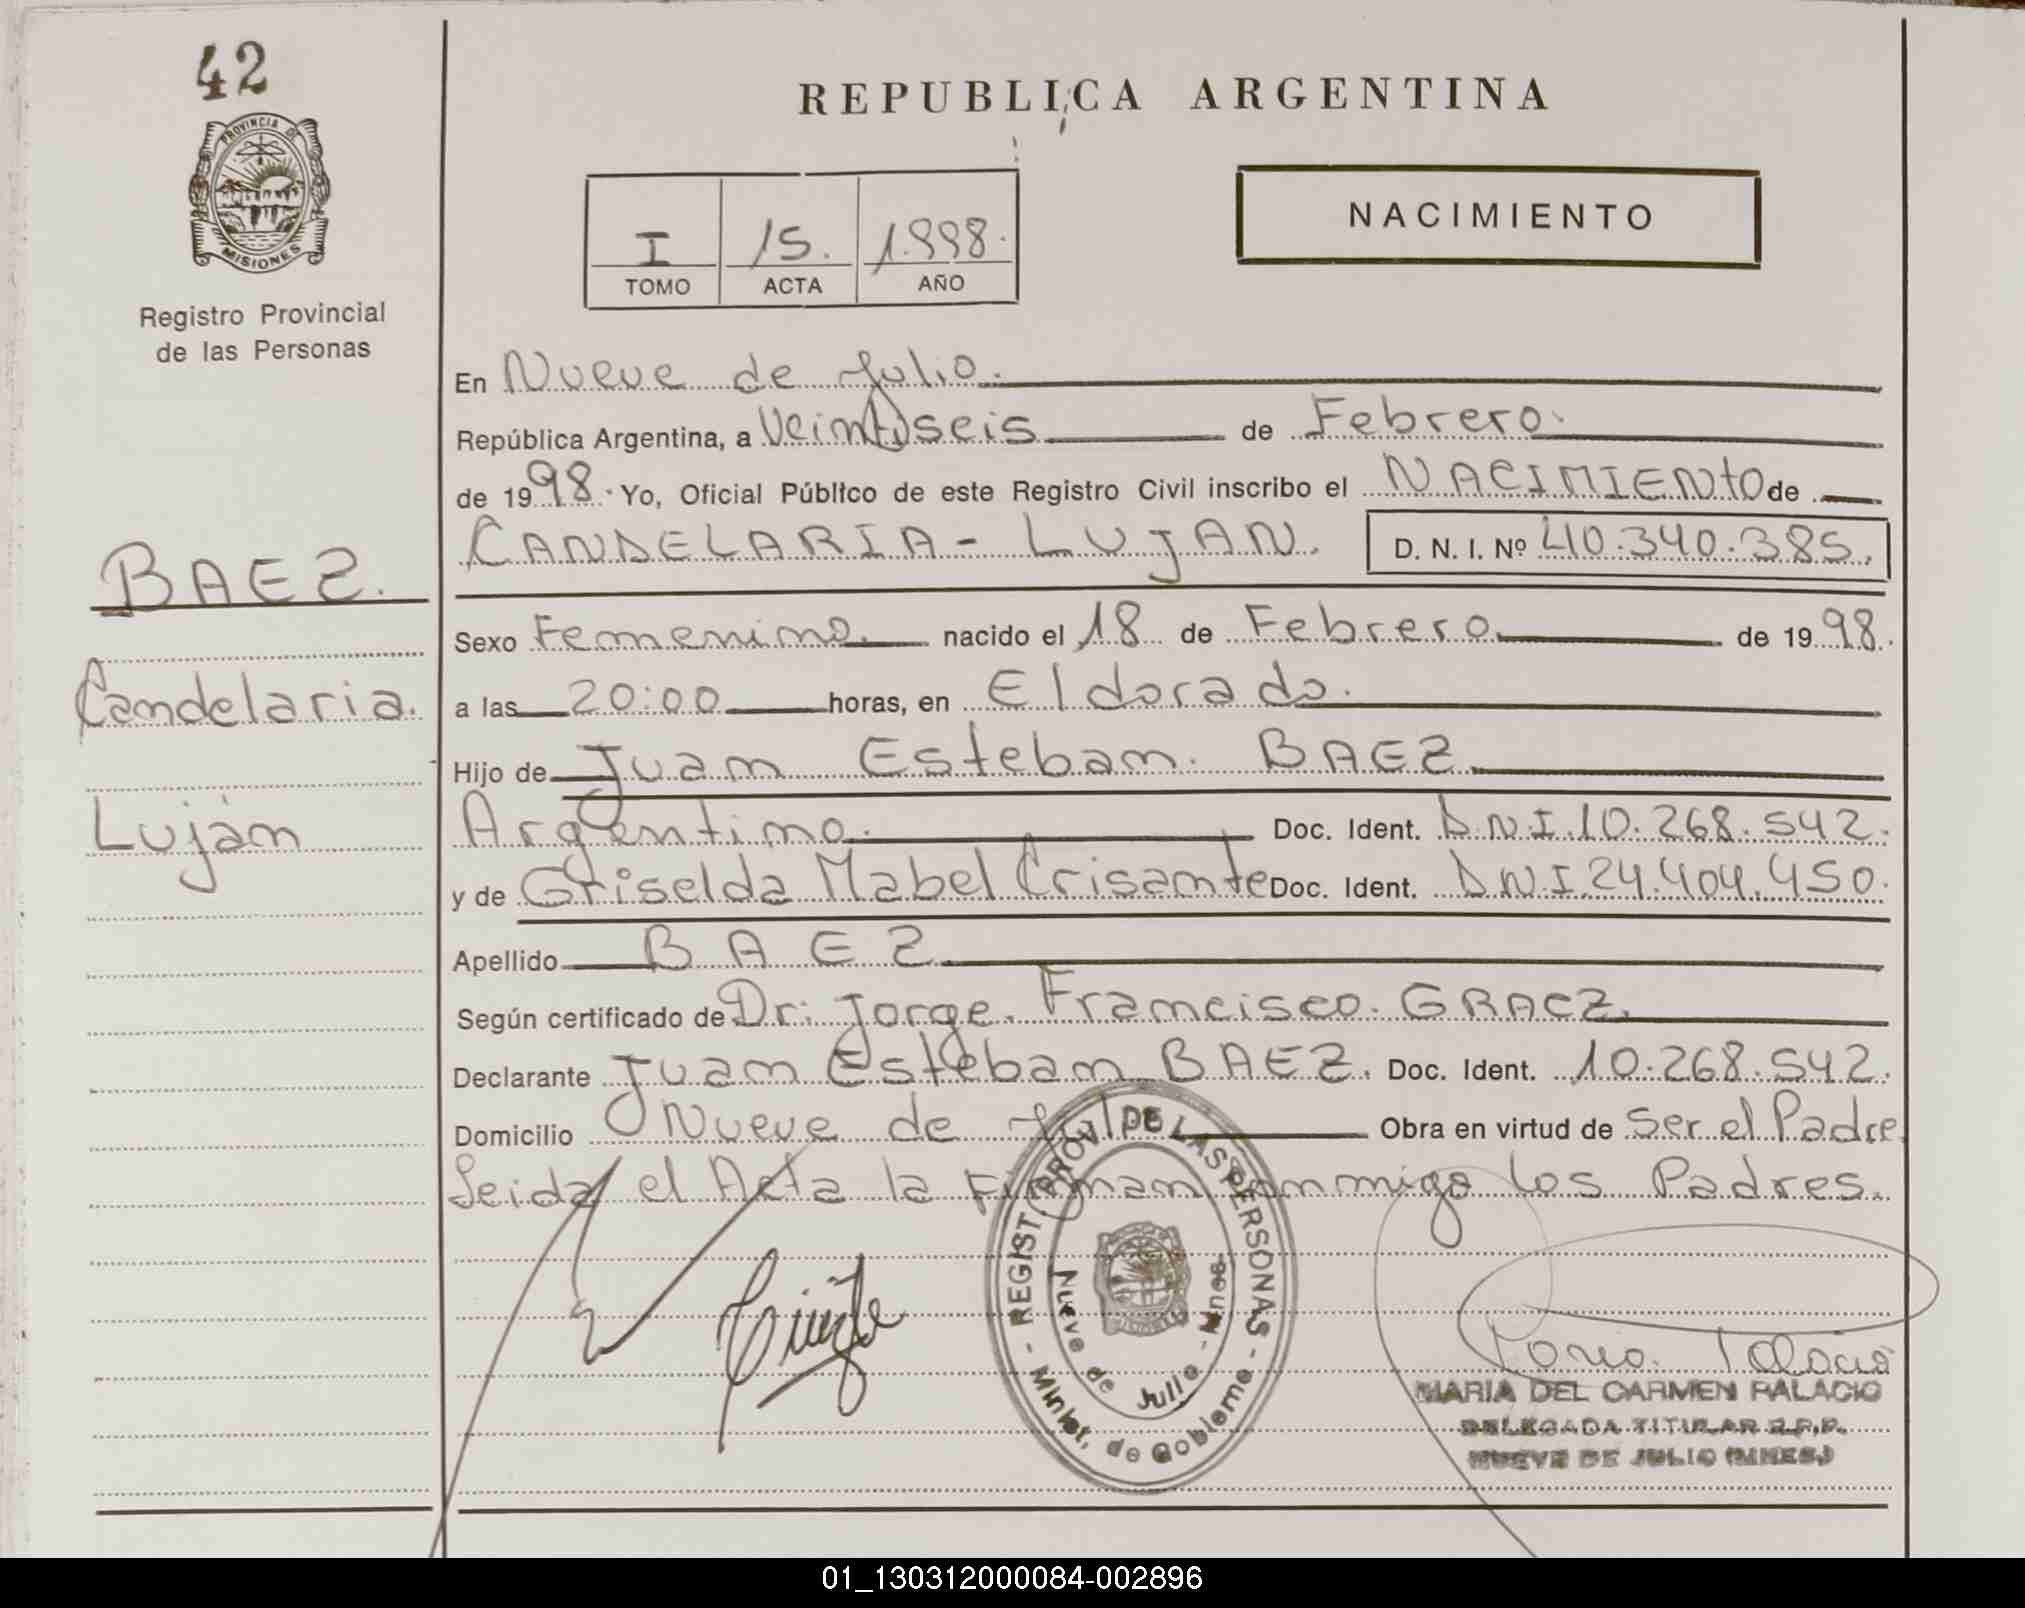 42
PROVINCIA DE
MISIONES
Registro Provincial
de las Personas
BAEZ.
Candelaria.
Luján
REPUBLICA ARGENTINA
I 15. 1.998.
TOMO ACTA AÑO
NACIMIENTO
En Nueve de Julio.
República Argentina, a Veintiseis de Febrero.
de 1998. Yo, Oficial Público de este Registro Civil inscribo el NACIMIENto de
CANDELARIA - LUJAN. D. N. I. Nº 40.340.385.
Sexo Femenino. nacido el 18 de Febrero de 1998.
a las 20:00 horas, en Eldorado.
Hijo de Juan Esteban. BAEZ
Argentino. Doc. Ident. D.N.I. 10.268.542.
y de Griselda Mabel Crisante Doc. Ident. D.N.I. 24.404.450.
Apellido BAEZ
Según certificado de Dr: Jorge. Francisco. GRACZ.
Declarante Juan Esteban BAEZ. Doc. Ident. 10.268.542.
Domicilio Nueve de Julio Obra en virtud de Ser el Padre
Leida el Acta la Firman conmigo los Padres.
REGIST. PROV. DE LAS PERSONAS
Nueve de Julio - Mnes.
- Minist. de Gobierno -
MARIA DEL CARMEN PALACIO
DELEGADA TITULAR R.P.P.
NUEVE DE JULIO (MNES.)
01_130312000084-002896